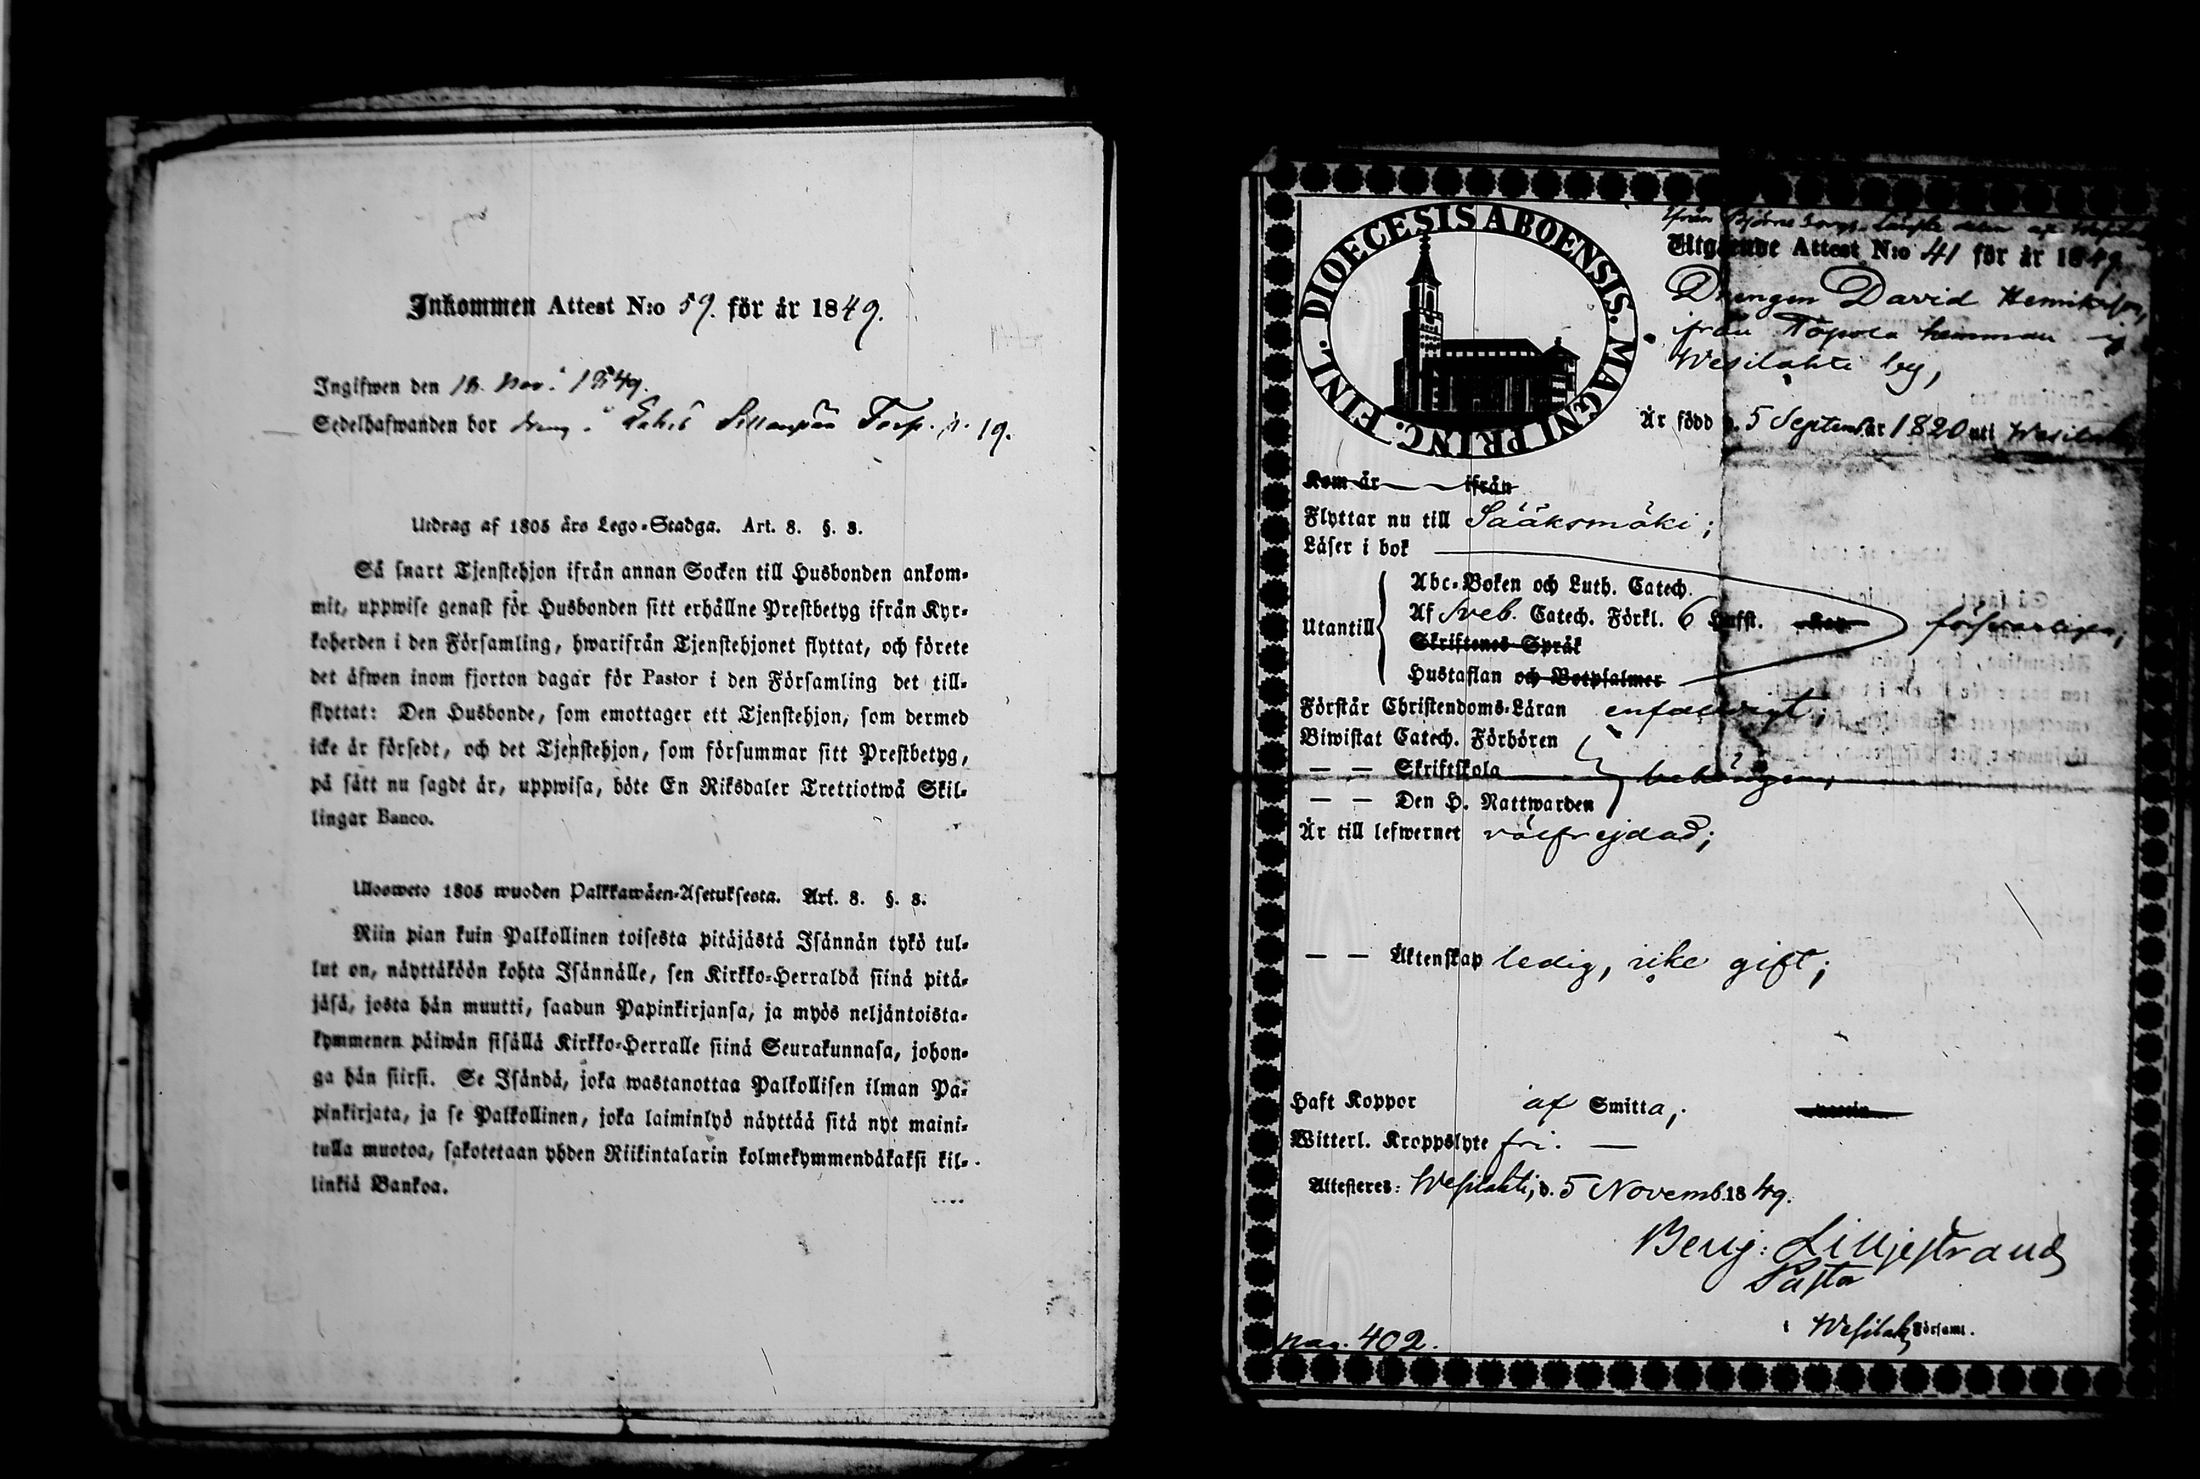 Inkommen Attest N:o 59. för år 1849.
Ingifwen den 18. Nov. 1849.
Sedelhafwanden bor dreng i Sillanpää Torp. p. 19.
Utdrag af 1805 års Lego-Stadga. Art. 8. §. 8.
Så snart Tjenstehjon ifrån annan Socken till Husbonden ankom-
mit, uppwise genast för Husbonden sitt erhållne Prestbetyg ifrån Kyr-
koherden i den Församling, hwarifrån Tjenstehjonet flyttat, och förete
det äfwen inom fjorton dagar för Pastor i den Församling det till-
flyttat: Den Husbonde, som emottager ett Tjenstehjon, som dermed
icke är försedt, och det Tjenstehjon, som försummar sitt Prestbetyg,
på sätt nu sagdt är, uppwisa, böte En Riksdaler Trettiotwå Skil-
lingar Banco.
Ulosweto 1805 wuoden Palkkawäen-Asetuksesta. Art. 8. §. 8.
Niin pian kuin Palkollinen toisesta pitäjästä Isännän tykö tul-
lut on, näyttäköön kohta Isännälle, sen Kirkko-Herralda siinä pitä-
jäsä, josta hän muutti, saadun Papinkirjansa, ja myös neljäntoista-
kymmenen päiwän sisällä Kirkko-Herralle siinä Seurakunnasa, johon-
ga hän siirsi. Se Isändä, joka wastanottaa Palkollisen ilman Pa-
pinkirjata, ja se Palkollinen, joka laiminlyö näyttää sitä nyt maini-
tulla muotoa, sakotetaan yhden Riikintalarin kolmekymmendäkaksi kil-
linkiä Bankoa.
DIOECESIS ABOENSIS. MAGNI PRINC. FINL.
ifrån Björne
Utgående Attest N:o 41 för år 1849
Drengen David Henriksson,
ifrån Töpola hemman i
Wesilahti by,
Är född d. 5 September år 1820 uti Wesilahti
Kom år ifrån
Flyttar nu till Sääksmäki;
Läser i bok
Abc-Boken och Luth. Catech.
Utantill Af Sveb. Catech. Förkl. 6 Hufst. Kap försvarligen;
Skriftenes Språk
Hustaflan och Botpsalmer
Förstår Christendoms-Läran enfaldigt;
Biwistat Catech. Förhören
— — Skriftskola behörigen;
— — Den H. Nattwarden
Är till lefwernet välfrejdad;
— — Äktenskap ledig, icke gift;
Haft Koppor af Smitta;
Witterl. Kroppslyte fri. —
Attesteres: Wesilahti, d. 5 Novemb. 1849.
Benj: Lilljestrand
Pastor
i Wesilahti Församl.
pag. 402.